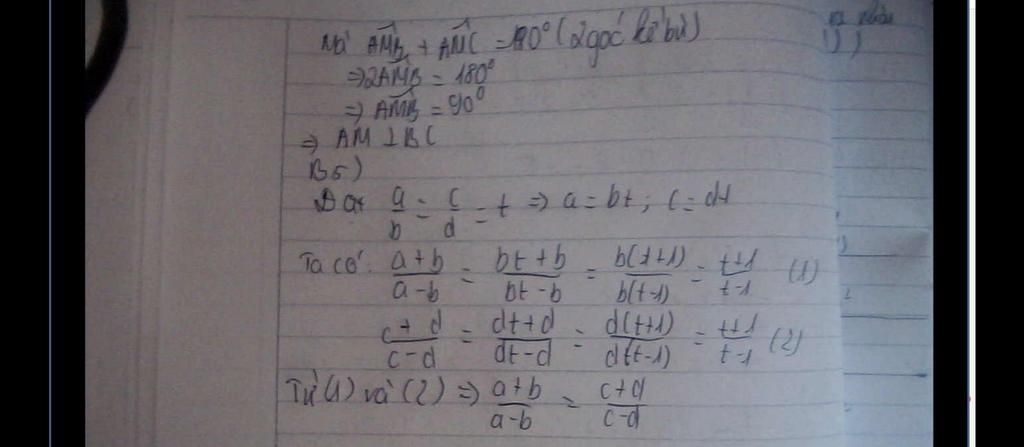 Mà AMB + AMC = 180° (2 góc kề bù)
⇒ 2AMB = 180°
⇒ AMB = 90°
⇒ AM ⊥ BC
B5)
Đặt a/b = c/d = t ⇒ a = bt ; c = dt
Ta có: a+b/a-b = bt+b/bt-b = b(t+1)/b(t-1) = t+1/t-1 (1)
c+d/c-d = dt+d/dt-d = d(t+1)/d(t-1) = t+1/t-1 (2)
Từ (1) và (2) ⇒ a+b/a-b = c+d/c-d